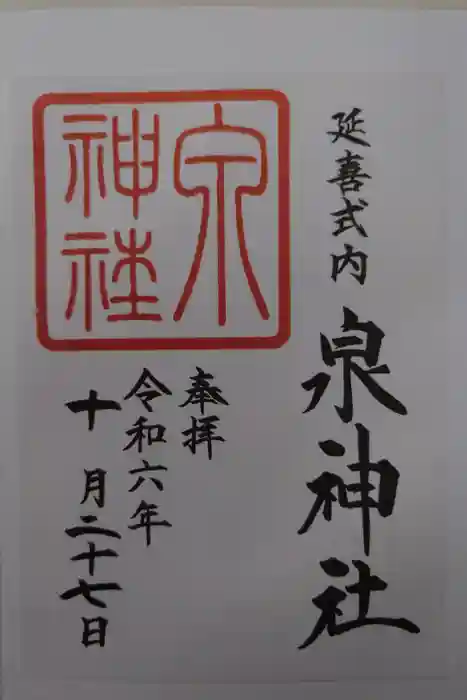 延喜式内 泉神社
泉
神社
奉拝
令和六年
十月二十七日